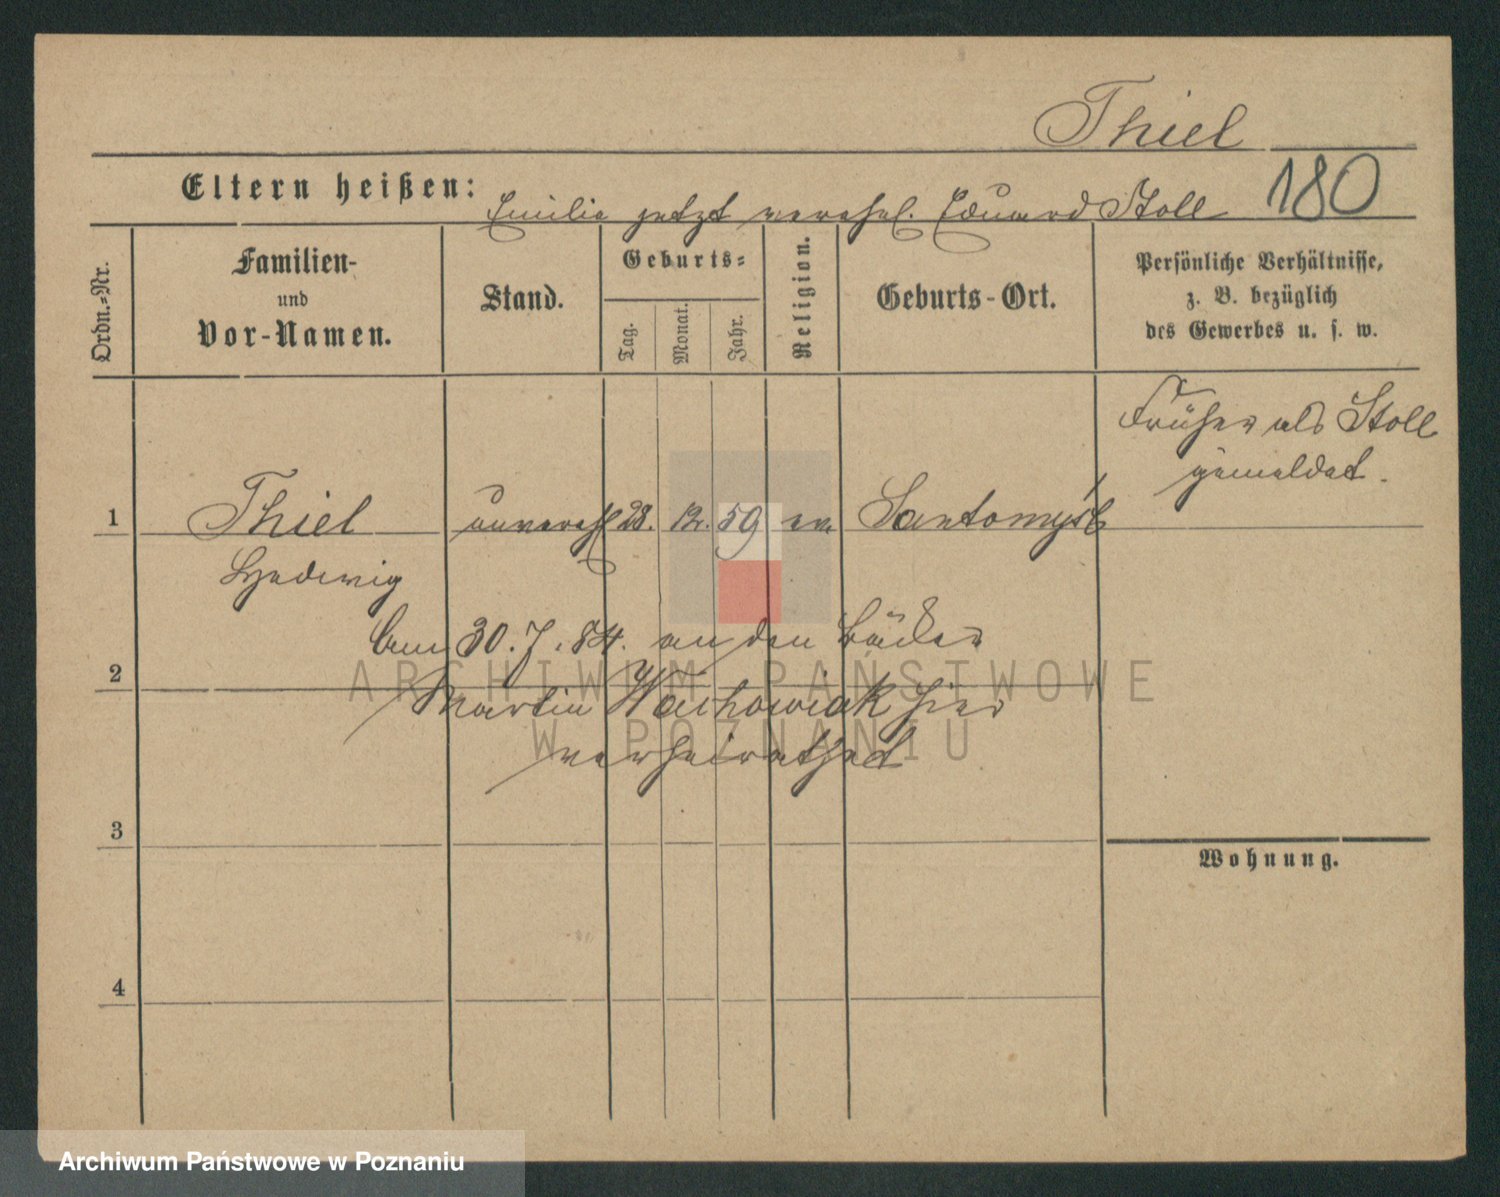 Thiel
180
Eltern heißen: Emilie jetzt verehel. Eduard Stoll
Ordn.-Nr.
Familien-
und
Vor-Namen.
Stand.
Geburts-
Tag.
Monat.
Jahr.
Religion.
Geburts-Ort.
Persönliche Verhältnisse,
z. B. bezüglich
des Gewerbes u. s. w.
Früher als Stoll
gemeldet.
1 Thiel unverehl 28. 12. 59 ev. Santomyśl
Hedwig
Am 30.7.84. an den Bäcker
2
Martin Wachowiak hier
verheirathet
3
Wohnung.
4
ARCHIWUM PAŃSTWOWE
W POZNANIU
Archiwum Państwowe w Poznaniu